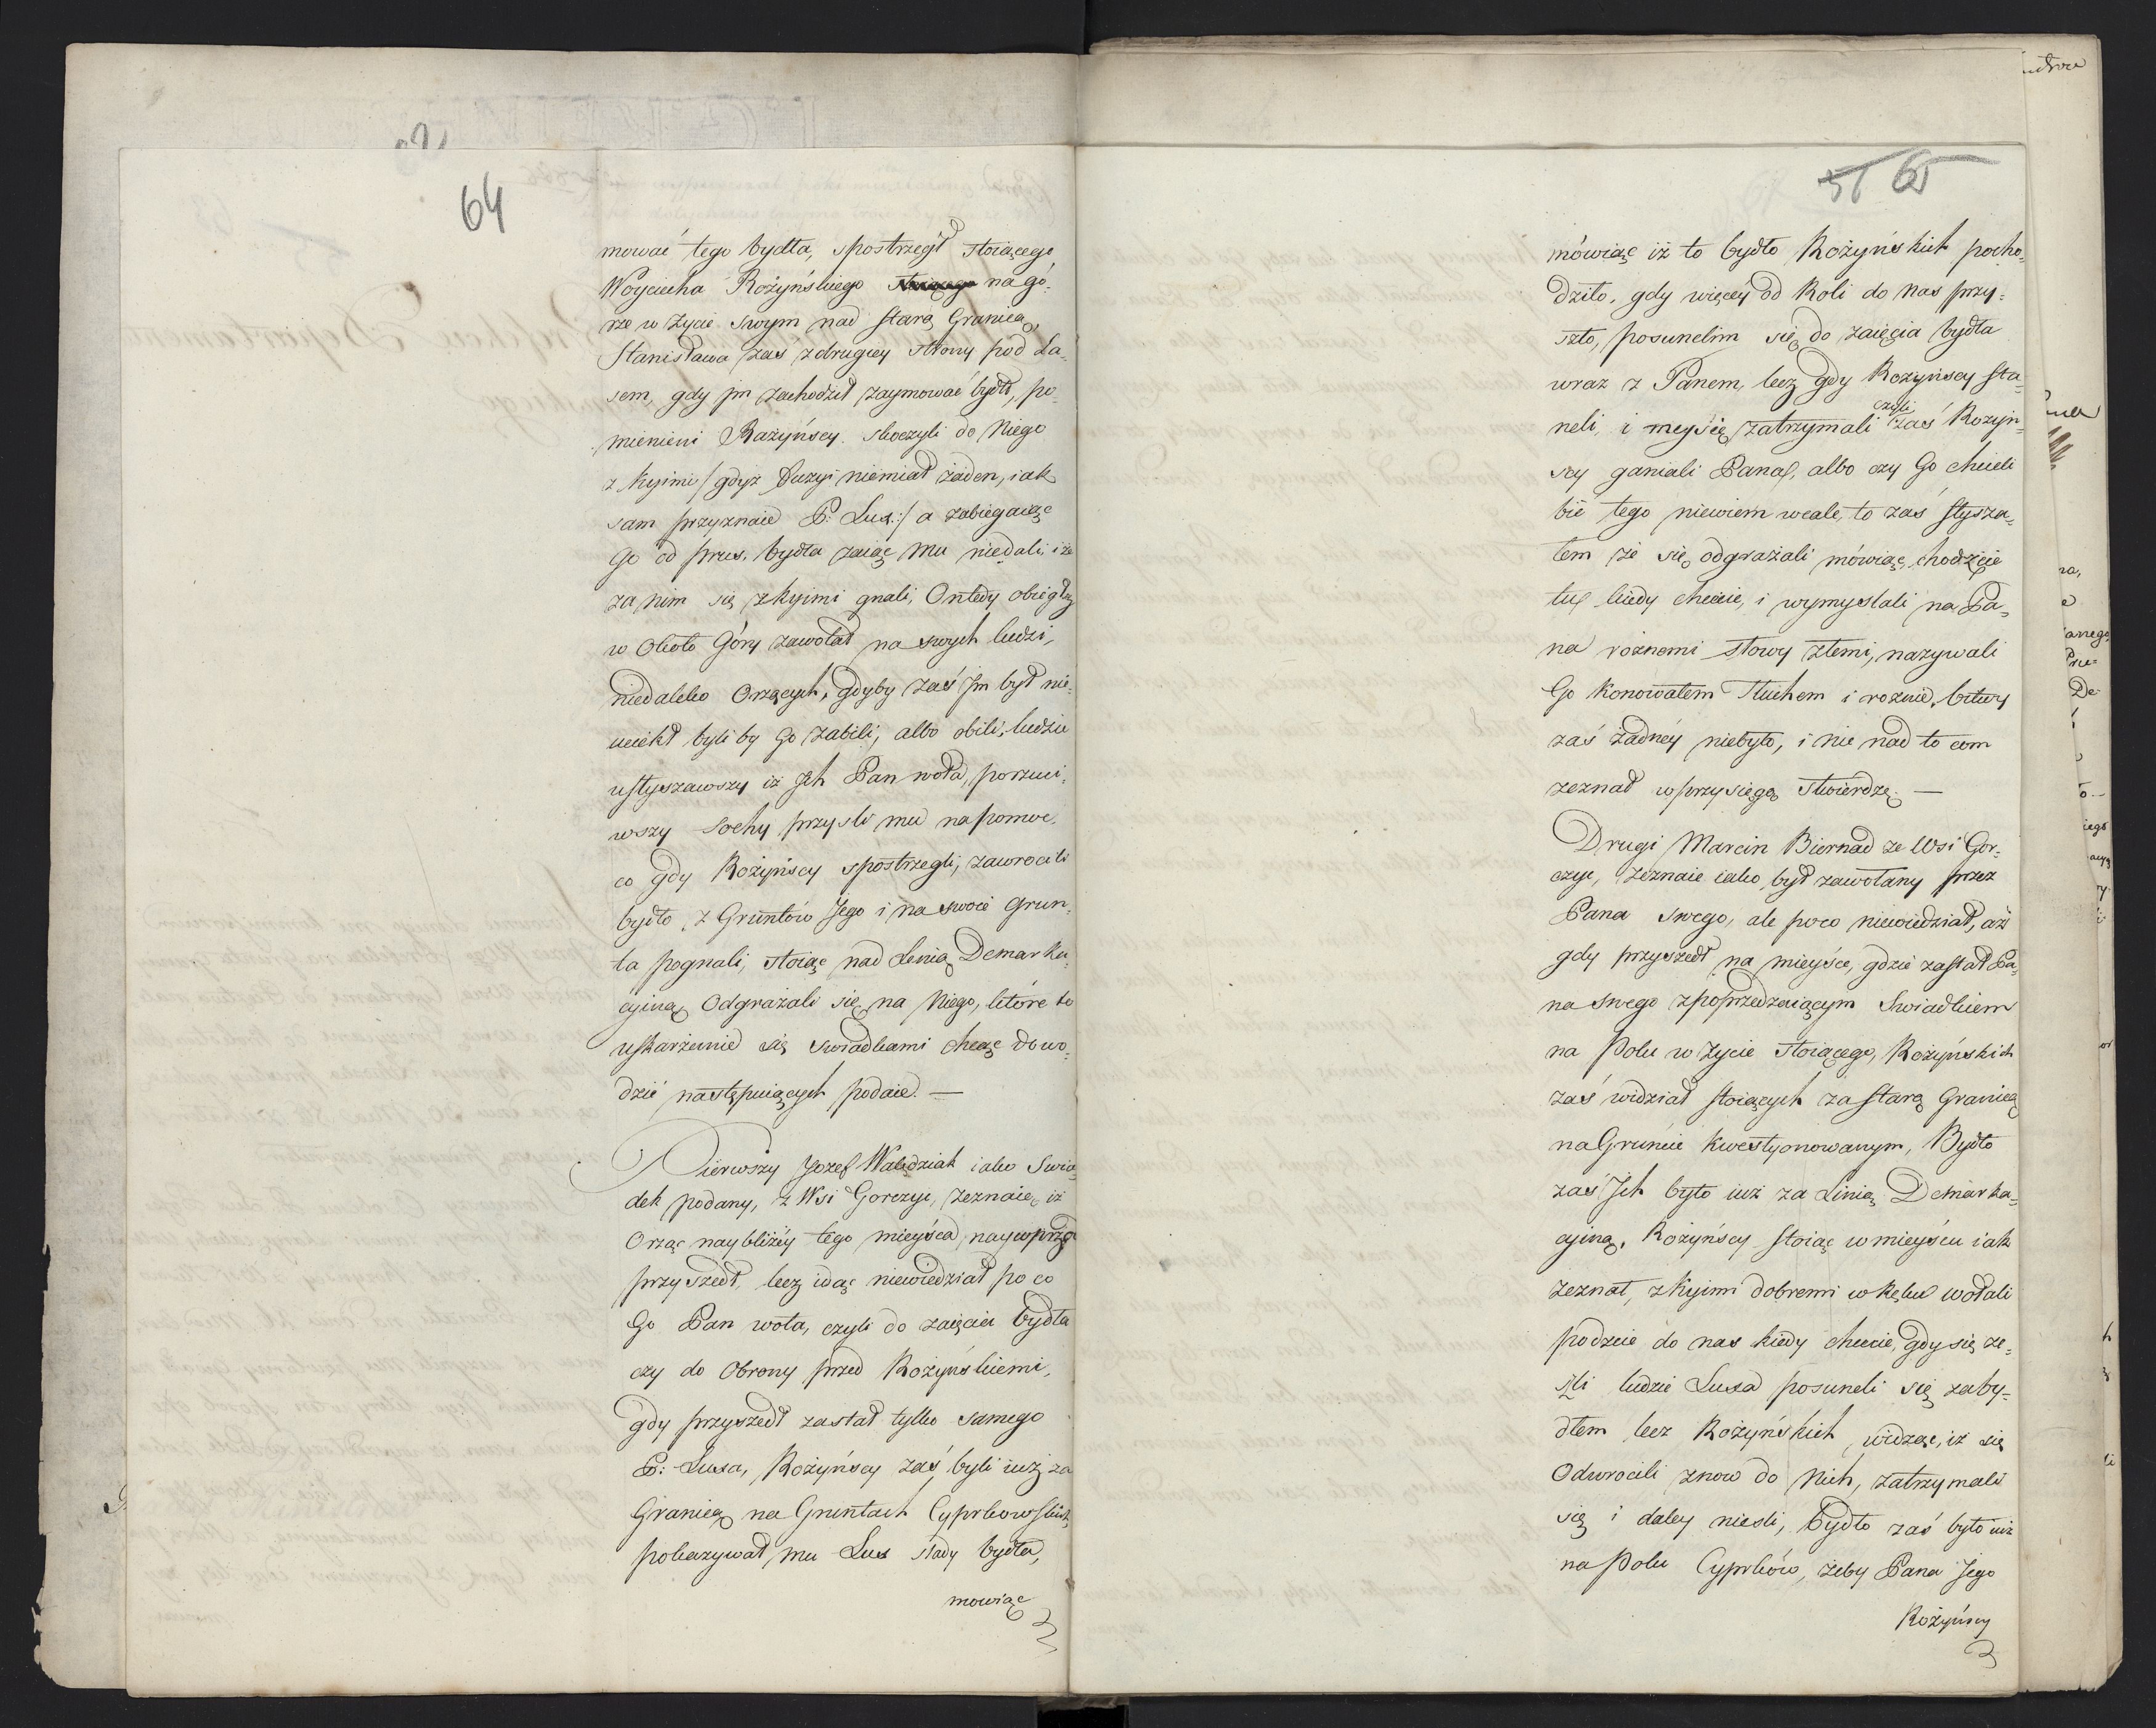 64
mować tego bydła, spostrzegł stoiącego
Woyciecha Rożyńskiego na gó-
rze w Życie swym nad starą Granicą,
Stanisława zaś z drugiey strony pod La-
sem, gdy im zachodził zaymować bydło, po-
mienieni Rażyńscy skoczyli do Niego
z Kyimi /: gdyż Fuzyi niemiał żaden, iak
sam przyznaie P: Lux :/ a zabiegaiąc
Go od prus. bydła zaiąc mu niedali, i że
za nim się z kyimi gnali, On tedy obiegłszy
w Około Góry zawołał na swych ludzi,
niedaleko Orzących, gdyby zaś Im był nie-
uciekł byliby Go zabili, albo obili, ludzie
usłyszawszy iż Ich Pan woła, porzuci-
wszy Sochy przyszli mu na pomoc,
co gdy Rożyńscy spostrzegli, zawrocili
bydło z Gruntów Jego i na swoie Grun-
ta pognali, stoiąc nad Lenią Demarka-
cyiną Odgrażali się na Niego, które to
uskarżenie się Swiadkami chcąc dowo-
dzić następuiących podaie. —
Pierwszy Jozef Walędziak iako Swia-
dek podany, z Wsi Gorczyc, zeznaie, iż
Orząc naybliżéy tego mieysca, naywprzód
przyszedł, lecz idąc niewiedział po co
Go Pan woła, czyli do zaięcia bydła
czy do Obrony przed Rożyńskiemi,
gdy przyszedł zastał tylko samego
P: Luxa, Rożyńscy zaś byli iuż za
Granicą na Gruntach Cyprkowskich,
pokazywał mu Lux slady bydła,
mowiąc
65
mówiąc iż to bydło Rożyńskich pocho-
dziło, gdy więcéy od Roli do nas przy-
szło, posunelim się do zaięcia bydła
wraz z Panem, lecz gdy Rożyńscy sta-
neli, i mysię zatrzymali czyli zaś Rożyń-
scy ganiali Pana, albo czy Go chcieli
bić tego niewiem wcale, to zaś słysza-
łem że się odgrażali mówiąc, chodźcie
tu kiedy chcecie, i wymyslali na Pa-
na roznemi słowy złemi, nazywali
Go Konowałem Tłuchem i roznie, bitwy
zaś żadnéy niebyło, i nic nad to com
zeznał w przysięgą stwierdzę. —
Drugi Marcin Biernad ze Wsi Gor-
czyc, zeznaie iako był zawołany przez
Pana swego, ale poco niewiedział, aż
gdy przyszedł na mieysce, gdzie zastał Pa-
na swego z poprzedzaiącym Swiadkiem
na Polu w Życie stoiącego, Rożyńskich
zaś widział stoiących za starą Granicą
na Gruncie Kwestyonowanym, Bydło
zaś Ich było iuż za Linią Demarka-
cyiną, Rożyńscy stoiąc w mieyscu iak
zeznał, z Kyimi dobremi w ręku wołali
podzcie do nas kiedy chcecie, gdy się ze-
szli ludzie Luxa posuneli się za by-
dłem lecz Rożyńskich, widząc, iż się
Odwrocili znow do Nich, zatrzymali
się i daley nieszli, Bydło zaś było iuż
na Polu Cyprków, żeby Pana Jego
Rożyńscy